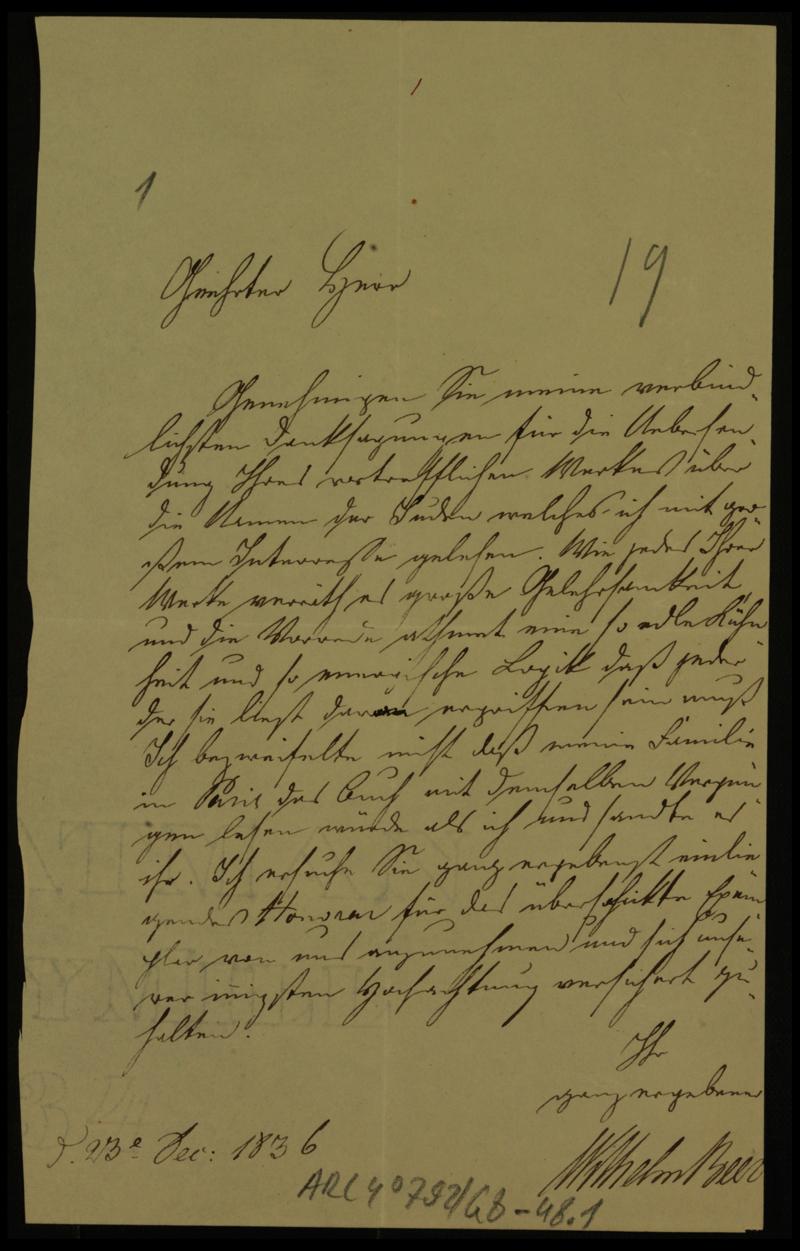 1
19
Geehrter Herr
Genehmigen Sie meine verbind-
lichsten Danksagungen für die Uebersen-
dung Ihres vortrefflichen Werkes über
die Namen der Juden welches ich mit gro-
ßem Interresse gelesen. Wie jedes Ihrer
Werke verräth es große Gelehrsamkeit
und die Vorrede athmet eine so edle Kühn-
heit und so energische Logik daß jeder
der sie liest davon ergriffen sein muß
Ich bezweifelte nicht daß meine Familie
in Paris das Buch mit demselben Vergnü-
gen lesen würde als ich und sandte es
ihr. Ich ersuche Sie ganz ergebenst einlie-
gendes Honorar für das überschickte Exem-
plar von uns anzunehmen und sich unse-
rer innigsten Hochachtung versichert zu
halten.
Ihr
ganz ergebener
Wilhelm Beer
d. 23e Dec: 1836
ARC 4° 792/G8-48.1